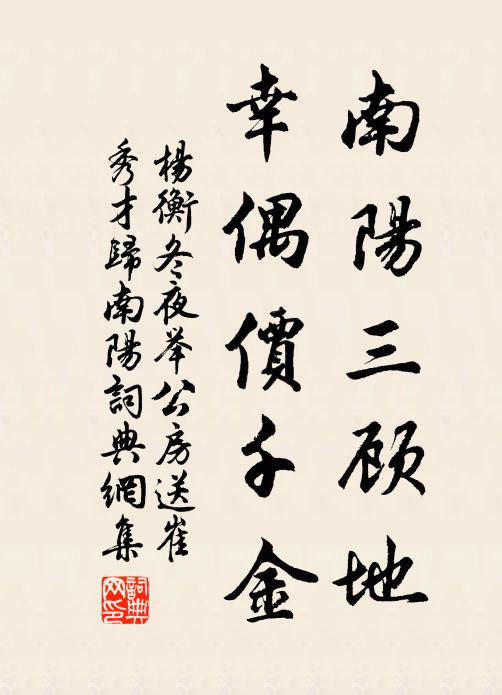 南陽三顾地
幸偶價千金
楊衡冬夜举公房送崔
秀才歸南陽詞典網集
詞典
网印